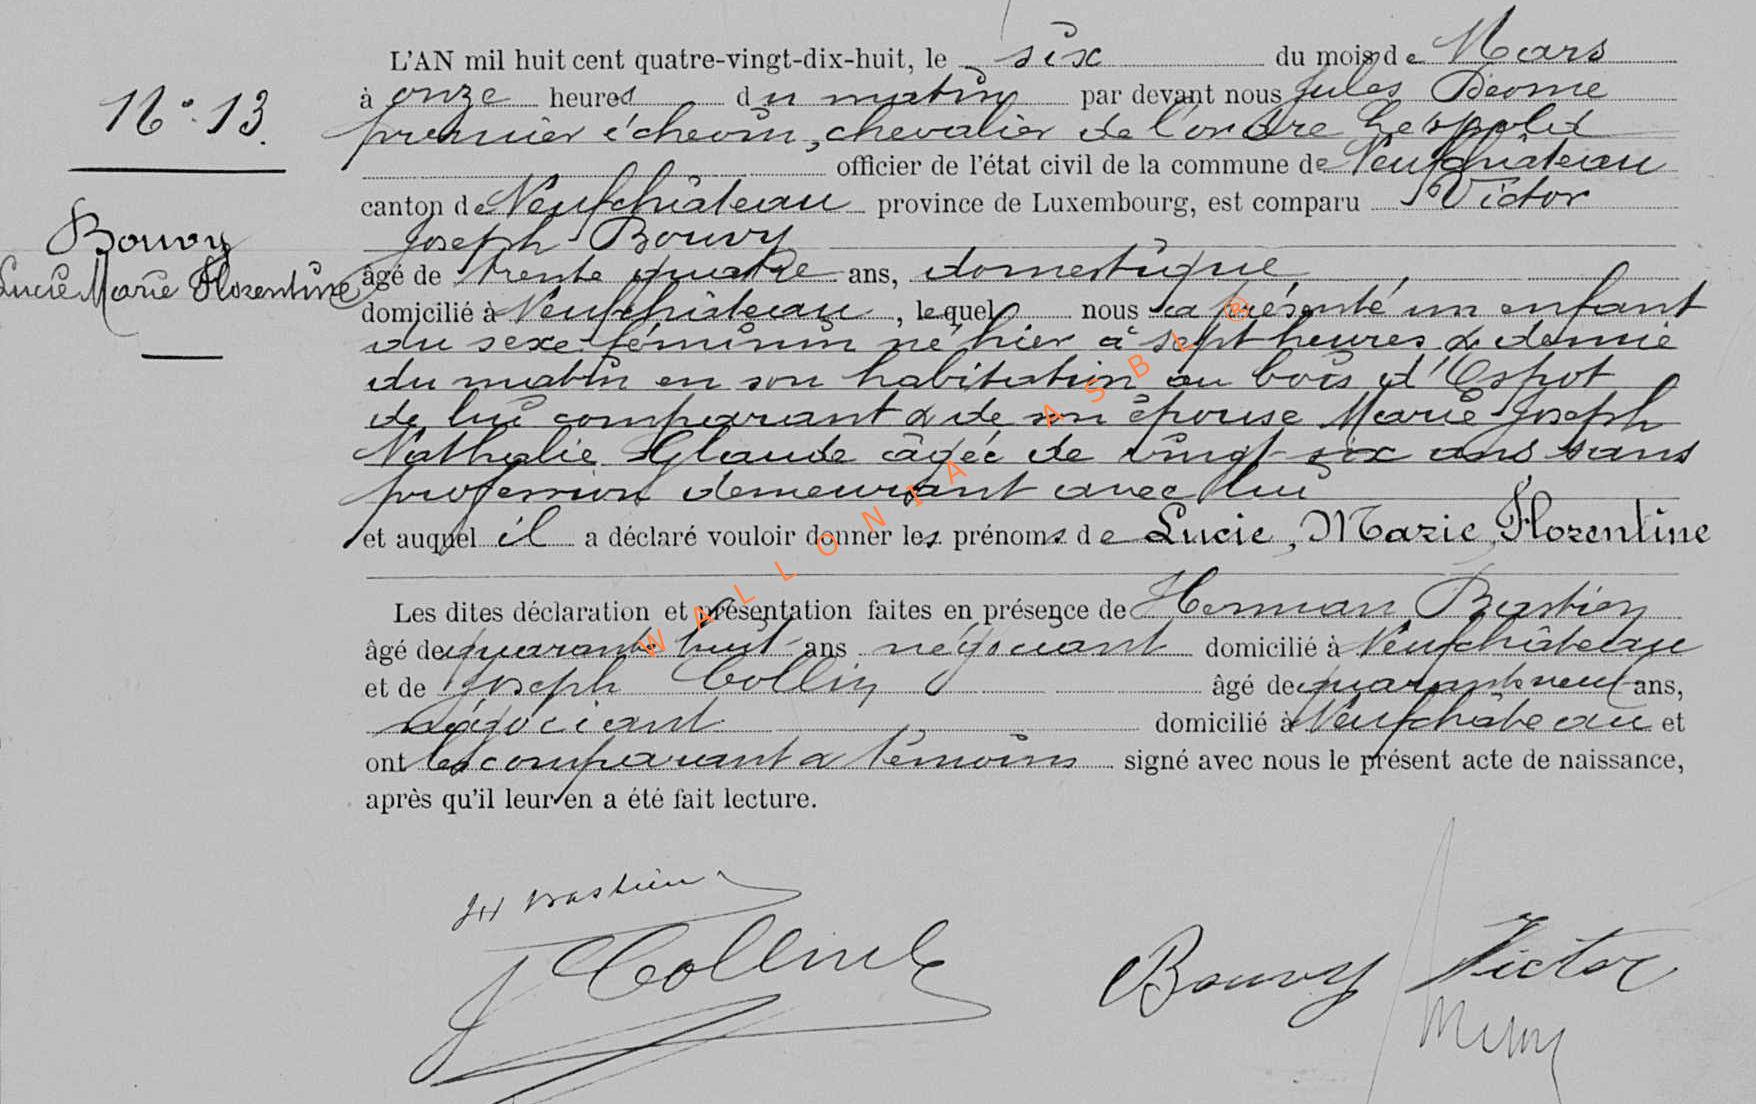 N° 13.
Bouvy
Lucie Marie Florentine
L'AN mil huit cent quatre-vingt-dix-huit, le six du mois de Mars
à onze heures du matin par devant nous Jules
premier échevin, chevalier de l'ordre Léopold
officier de l'état civil de la commune de Neufchâteau
canton de Neufchâteau province de Luxembourg, est comparu Victor
Joseph Bouvy
âgé de trente quatre ans, domestique
domicilié à Neufchâteau, lequel nous a présenté un enfant
du sexe féminin né hier à sept heures & demie
du matin en son habitation au bois d'Espot
de lui comparant & de son épouse Marie Joseph
Nathalie Glaude âgée de vingt six ans sans
profession demeurant avec lui
et auquel il a déclaré vouloir donner les prénoms de Lucie, Marie, Florentine
Les dites déclaration et présentation faites en présence de Herman Bastien
âgé de quarante huit ans négociant domicilié à Neufchâteau
et de Joseph Collin âgé de quarante neuf ans,
négociant domicilié à Neufchâteau et
ont les comparant & témoins signé avec nous le présent acte de naissance,
après qu'il leur en a été fait lecture.
WALLONIA ASBL ®
H Bastien
J Collin
Bouvy Victor